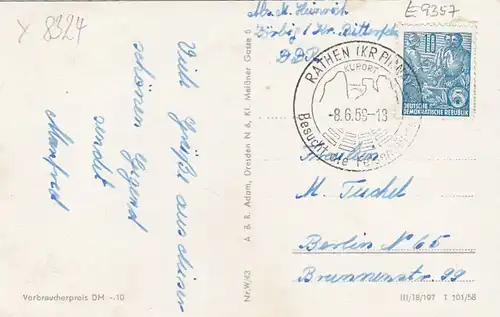 Y 8324
E 9357
Viele Grüße aus dieser
schönen Gegend
sendet
Manfred
Verbraucherpreis DM -.10
Nr. W/43
A & R. Adam, Dresden N 6, Kl. Meißner Gasse 5
Abs. M. Heinrich
Zörbig / Kr. Bitterfeld
DDR
RATHEN (KR PIRNA)
KURORT
-8.6.59-13
Besucht die Felsen
DEUTSCHE
DEMOKRATISCHE REPUBLIK
Fräulein
M. Tuchel
Berlin N 65
Brunnenstr. 99
III/18/197 I 101/58